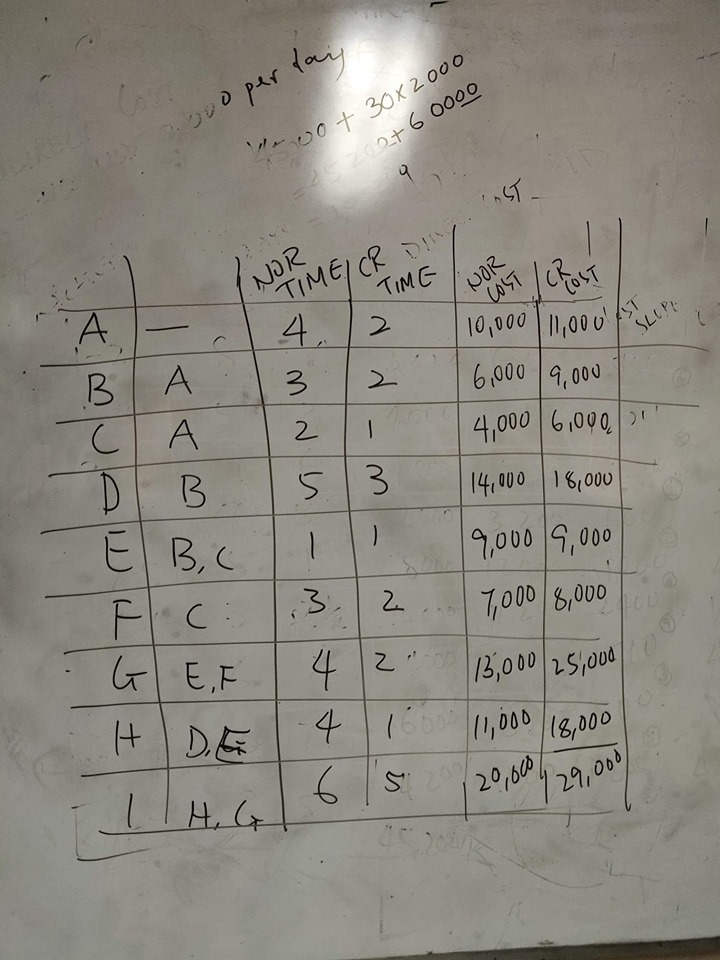 000 per day
00 + 30×2000
+ 60000
NOR TIME CR TIME NOR COST CR COST
A — 4 2 10,000 11,000 SLOPE
B A 3 2 6,000 9,000
C A 2 1 4,000 6,000
D B 5 3 14,000 18,000
E B,C 1 1 9,000 9,000
F C 3 2 7,000 8,000
G E,F 4 2 13,000 25,000
H D,E 4 1 11,000 18,000
I H,G 6 5 20,000 29,000